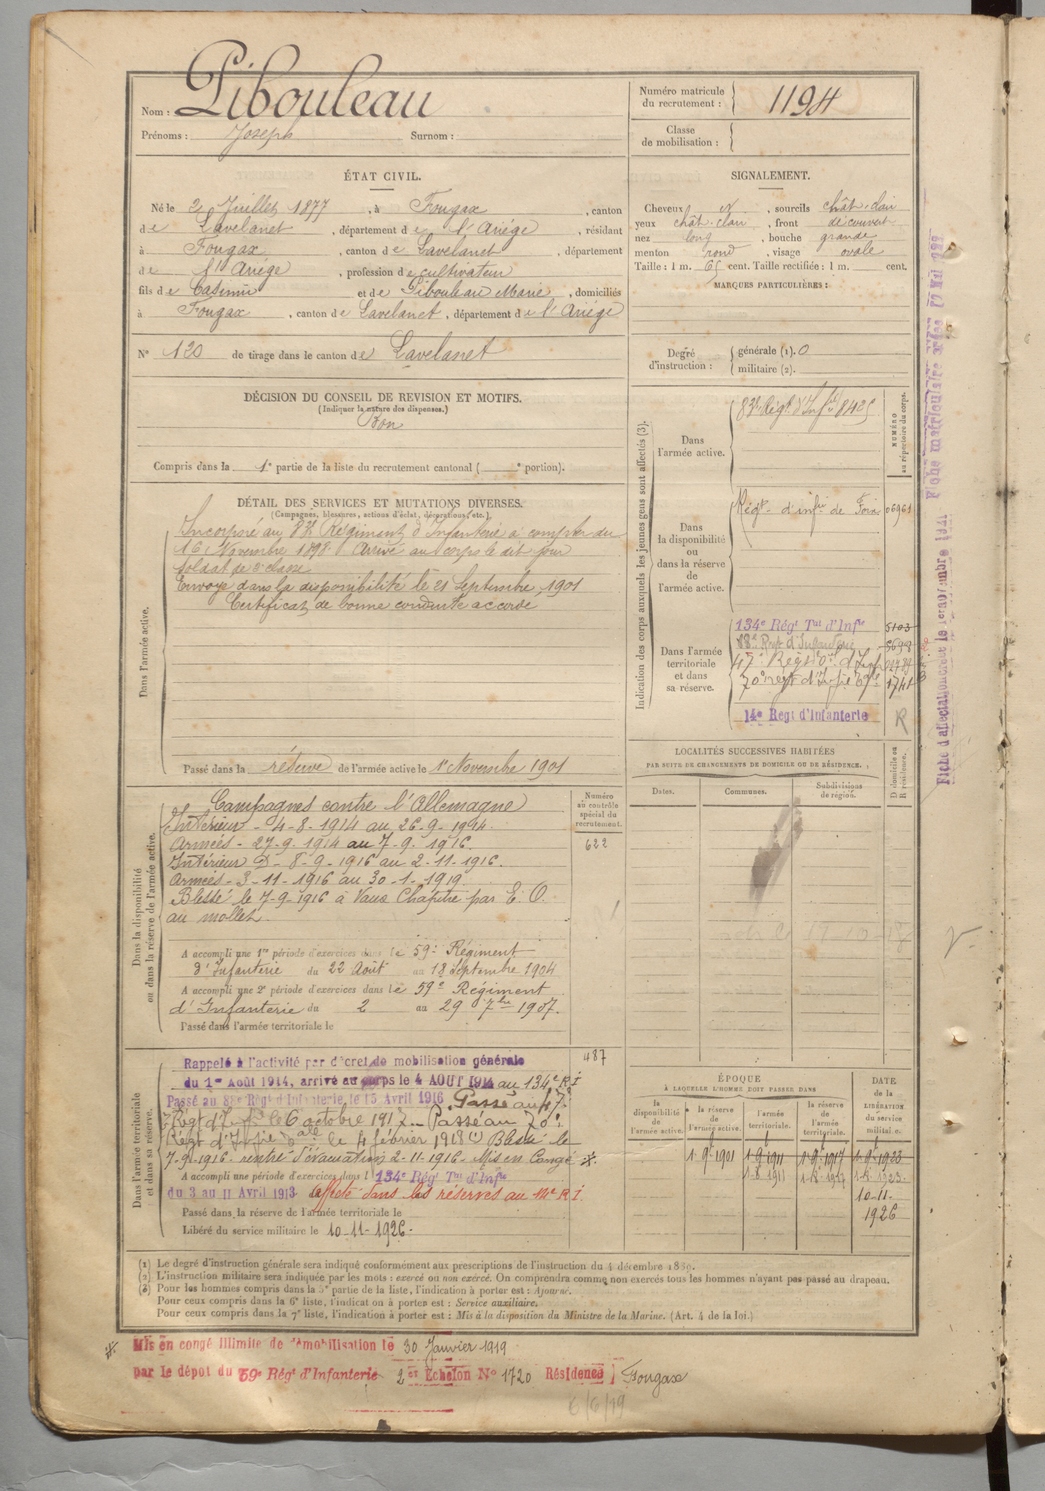 Nom : Pibouleau
Prénoms : Joseph Surnom :
Numéro matricule du recrutement : 1194
Classe de mobilisation :
ÉTAT CIVIL.
Né le 2 Juillet 1877, à Fougax, canton
de Lavelanet, département de l'Ariège, résidant
à Fougax, canton de Lavelanet, département
de l'Ariège, profession de cultivateur
fils de Casimir et de Pibouleau Marie, domiciliés
à Fougax, canton de Lavelanet, département de l'Ariège
N° 120 de tirage dans le canton de Lavelanet
SIGNALEMENT.
Cheveux et, sourcils chât-clair
yeux chât-clair, front découvert
nez long, bouche grande
menton rond, visage ovale
Taille : 1 m. 65 cent. Taille rectifiée : 1 m. cent.
MARQUES PARTICULIÈRES :
Degré d'instruction : générale (1). 0
militaire (2).
DÉCISION DU CONSEIL DE REVISION ET MOTIFS.
(Indiquer la nature des dispenses.)
Bon
Compris dans la 1e partie de la liste du recrutement cantonal ( e portion).
DÉTAIL DES SERVICES ET MUTATIONS DIVERSES.
(Campagnes, blessures, actions d'éclat, décorations, etc.)
Dans l'armée active.
Incorporé au 83e Régiment d'Infanterie à compter du
16 Novembre 1898 Arrivé au corps le dit jour
soldat de 2e classe
Envoyé dans la disponibilité le 21 Septembre 1901
Certificat de bonne conduite accordé
Passé dans la réserve de l'armée active le 1er Novembre 1901
Indication des corps auxquels les jeunes gens sont affectés (3).
NUMÉRO au répertoire du corps.
Dans l'armée active.
83e Régt d'Infie 8425
Dans la disponibilité ou dans la réserve de l'armée active.
Régt d'infie de Foix 06961
Dans l'armée territoriale et dans sa réserve.
134e Régt Tal d'Infie 5103
88e Regt d'Infanterie 5698
47e Régt d'Infie
70e régt d'Infie 1741
14e Régt d'Infanterie R
LOCALITÉS SUCCESSIVES HABITÉES
PAR SUITE DE CHANGEMENTS DE DOMICILE OU DE RÉSIDENCE.
Dates. Communes. Subdivisions de région. D domicile ou R résidence.
Dans la disponibilité ou dans la réserve de l'armée active.
Numéro au contrôle spécial du recrutement.
622
Campagnes contre l'Allemagne
Intérieur - 4-8-1914 au 26-9-1914.
Armées - 27-9-1914 au 7-9-1916.
Intérieur D - 8-9-1916 au 2-11-1916.
Armées - 3-11-1916 au 30-1-1919.
Blessé le 7-9-1916 à Vaux Chapitre par E. O.
au mollet.
A accompli une 1re période d'exercices dans le 59e Régiment
d'Infanterie du 22 Août au 18 Septembre 1904
A accompli une 2e période d'exercices dans le 59e Régiment
d'Infanterie du 2 au 29 7bre 1907.
Passé dans l'armée territoriale le
Dans l'armée territoriale et dans sa réserve.
487
Rappelé à l'activité par décret de mobilisation générale
du 1er Août 1914, arrivé au corps le 4 AOUT 1914 au 134e R I
Passé au 88e Régt d'Infanterie, le 15 Avril 1916. Passé au 47e
Régt d'Infie le 6 octobre 1917. Passé au 70e
Régt d'Infie le 4 février 1918 (1) Blessé le
7.9.1916 rentré d'évacuation 2-11-1916. Mis en Congé
A accompli une période d'exercices dans l 134e Régt Tal d'Infie
du 3 au 11 Avril 1913 affecté dans les réserves au 14e R I
Passé dans la réserve de l'armée territoriale le
Libéré du service militaire le 10-11-1926.
ÉPOQUE
À LAQUELLE L'HOMME DOIT PASSER DANS
la disponibilité de l'armée active. la réserve de l'armée active. l'armée territoriale. la réserve de l'armée territoriale.
DATE de la LIBÉRATION du service militaire.
1-9bre 1901 1-9bre 1911 1-9bre 1917 1-9bre 1923
1-8-1911 1-8-1917 1-8-1923.
10-11-1926
(1) Le degré d'instruction générale sera indiqué conformément aux prescriptions de l'instruction du 4 décembre 1889.
(2) L'instruction militaire sera indiquée par les mots : exercé ou non exercé. On comprendra comme non exercés tous les hommes n'ayant pas passé au drapeau.
(3) Pour les hommes compris dans la 5e partie de la liste, l'indication à porter est : Ajourné.
Pour ceux compris dans la 6e liste, l'indication à porter est : Service auxiliaire.
Pour ceux compris dans la 7e liste, l'indication à porter est : Mis à la disposition du Ministre de la Marine. (Art. 4 de la loi.)
Mis en congé illimité de démobilisation le 30 Janvier 1919
par le dépot du 59e Régt d'Infanterie 2er Echelon N° 1720 Résidence Fougax
6/6/19